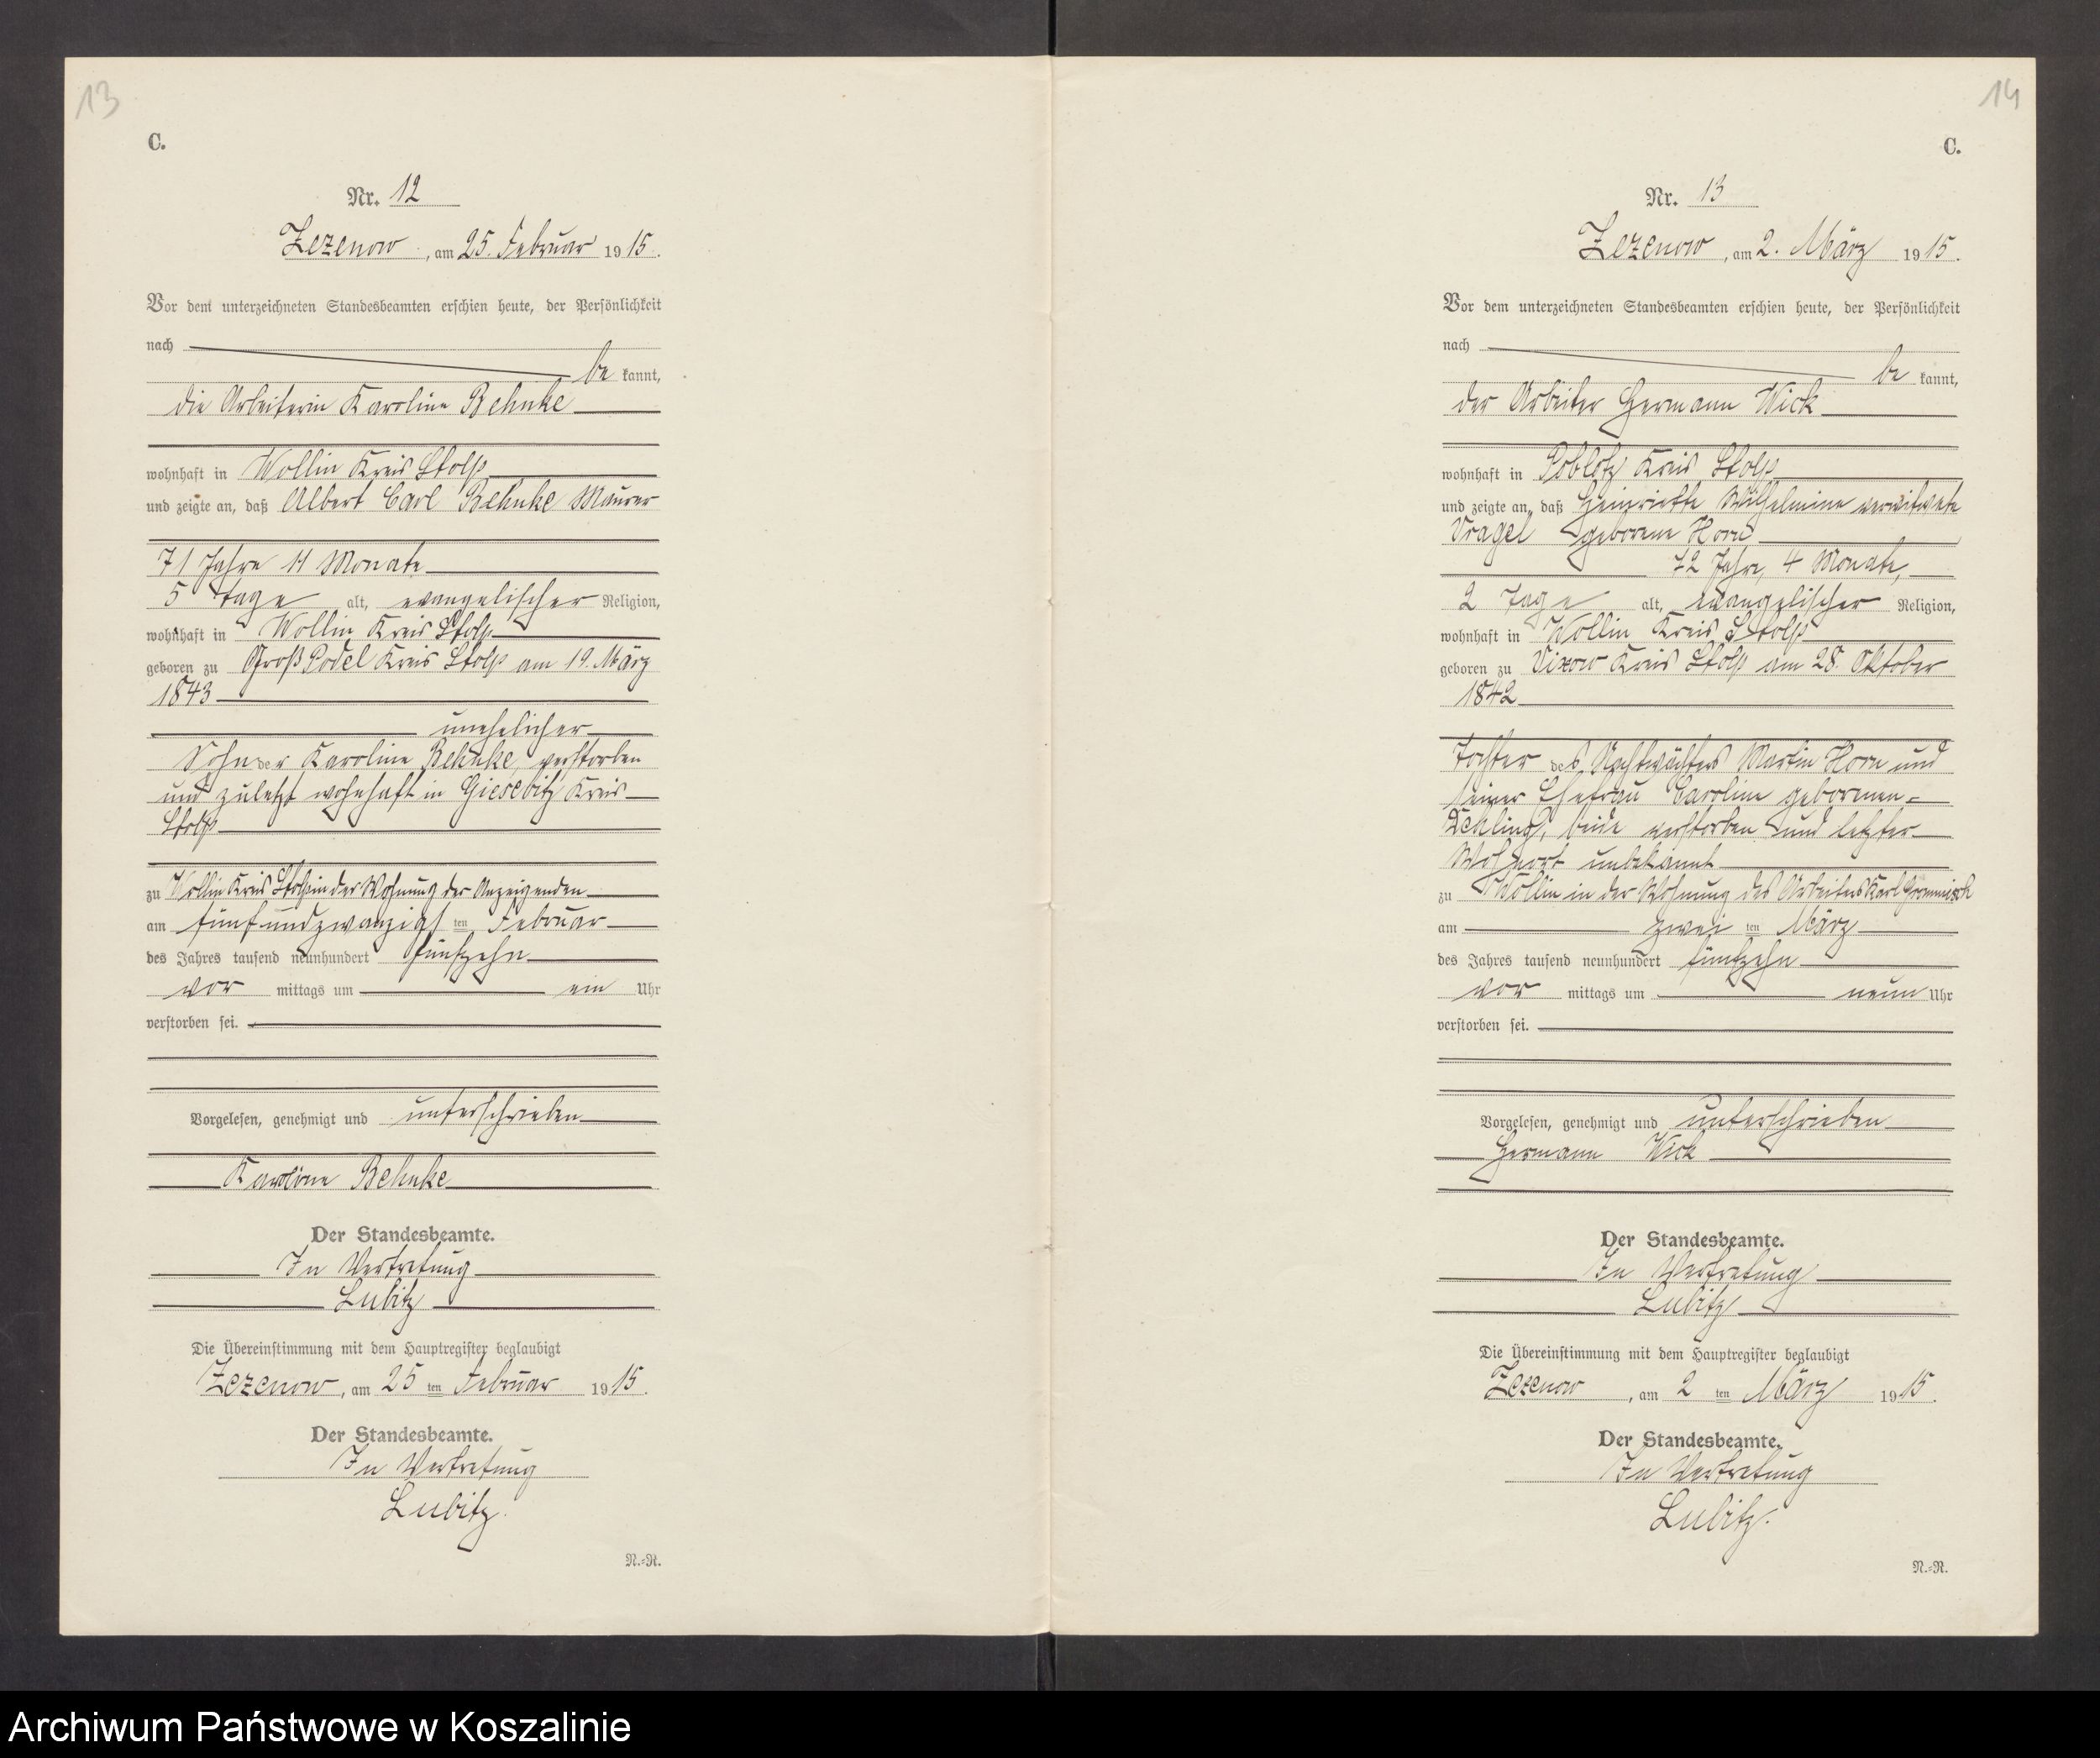 13
C.
Nr. 12
Zezenow, am 25. Februar 1915.
Vor dem unterzeichneten Standesbeamten erschien heute, der Persönlichkeit
nach
be kannt,
die Arbeiterin Karoline Behnke
wohnhaft in Wollin Kreis Stolp
und zeigte an, daß Albert Carl Behnke Maurer
71 Jahre 11 Monate
5 Tage alt, evangelischer Religion,
wohnhaft in Wollin Kreis Stolp
geboren zu Groß Podel Kreis Stolp am 19. März
1843
unehelicher
Sohn der Karoline Behnke, verstorben
und zuletzt wohnhaft in Giesebitz Kreis
Stolp
zu Wollin Kreis Stolp in der Wohnung der Anzeigenden
am fünfundzwanzigsten Februar
des Jahres tausend neunhundert fünfzehn
vor mittags um ein Uhr
verstorben sei.
Vorgelesen, genehmigt und unterschrieben
Karoline Behnke
Der Standesbeamte.
In Vertretung
Lubitz
Die Übereinstimmung mit dem Hauptregister beglaubigt
Zezenow, am 25 ten Februar 1915.
Der Standesbeamte.
In Vertretung
Lubitz.
N.=R.
14
C.
Nr. 13
Zezenow, am 2. März 1915.
Vor dem unterzeichneten Standesbeamten erschien heute, der Persönlichkeit
nach
be kannt,
der Arbeiter Hermann Wick
wohnhaft in Poblotz Kreis Stolp
und zeigte an, daß Henriette Wilhelmine verwitwete
Vragel geborene Horn
72 Jahre, 4 Monate,
2 Tage alt, evangelischer Religion,
wohnhaft in Wollin Kreis Stolp
geboren zu Vixow Kreis Stolp am 28. Oktober
1842
Tochter des Nachtwächters Martin Horn und
seiner Ehefrau Caroline geborenen
beide verstorben und letzter
Wohnort unbekannt
zu Wollin in der Wohnung des Arbeiters Karl
am zwei ten März
des Jahres tausend neunhundert fünfzehn
vor mittags um neun Uhr
verstorben sei.
Vorgelesen, genehmigt und unterschrieben
Hermann Wick
Der Standesbeamte.
In Vertretung
Lubitz
Die Übereinstimmung mit dem Hauptregister beglaubigt
Zezenow, am 2 ten März 1915.
Der Standesbeamte.
In Vertretung
Lubitz.
N.=R.
Archiwum Państwowe w Koszalinie